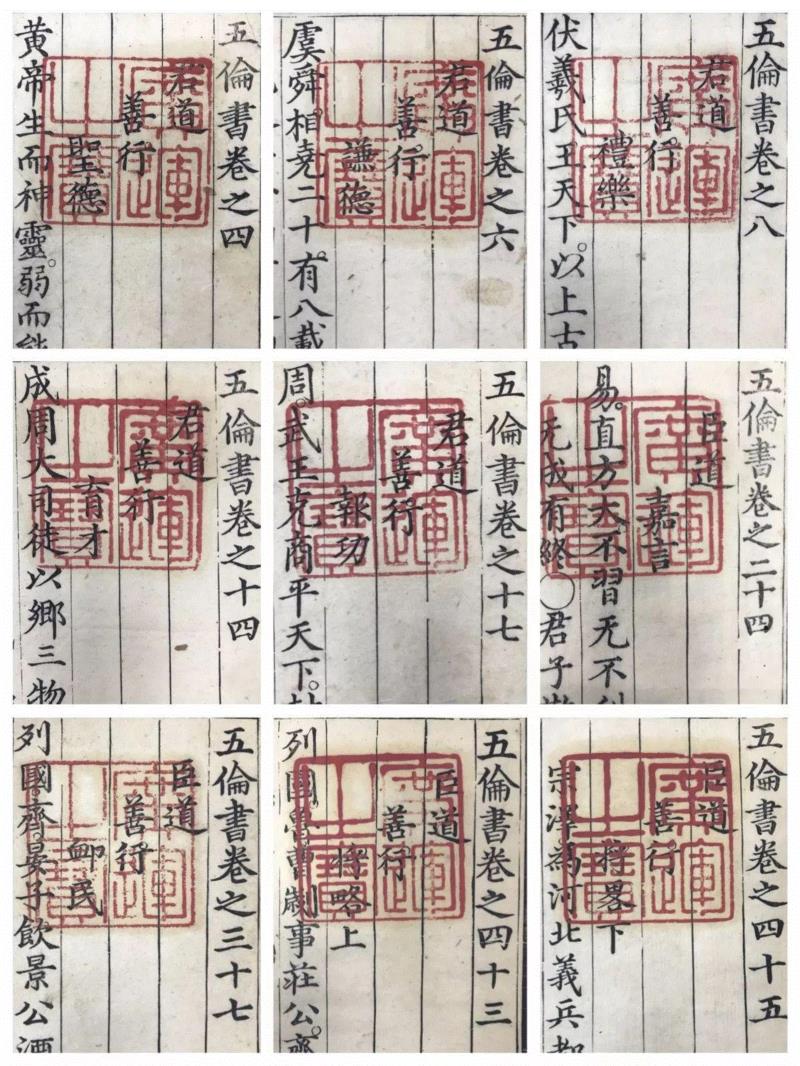 五倫書卷之四
君道
善行
聖德
黃帝生而神靈。弱而能
廣運之寶
五倫書卷之六
君道
善行
謙德
虞舜相堯二十。有八載
廣運之寶
五倫書卷之八
君道
善行
禮樂
伏羲氏王天下。以上古
廣運之寶
五倫書卷之十四
君道
善行
育才
成周大司徒以鄉三物
廣運之寶
五倫書卷之十七
君道
善行
報功
周。武王克商平天下。
廣運之寶
五倫書卷之二十四
臣道
嘉言
易。直方大不習无不利
无成有終〇君子
廣運之寶
五倫書卷之三十七
臣道
善行
卹民
列國。齊。晏子飲景公酒
廣運之寶
五倫書卷之四十三
臣道
善行
將略上
列國魯曹劌事莊公。齊
廣運之寶
五倫書卷之四十五
臣道
善行
將畧下
宗澤為河北義兵都
廣運之寶